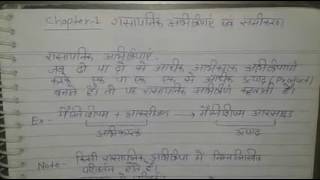 Chapter-1 रासायनिक अभिक्रियाएं एवं समीकरण
रासायनिक अभिक्रियाएं-
जब दो या दो से अधिक अभिकारक अभिक्रिया
करके एक या एक से अधिक उत्पाद (Product)
बनाते हैं तो यह रासायनिक अभिक्रिया कहलाती है।
Ex- मैग्नीशियम + आक्सीजन → मैग्नीशियम आक्साइड
अभिकारक उत्पाद
Note- किसी रासायनिक अभिक्रिया में निम्नलिखित
परिवर्तन होते हैं।